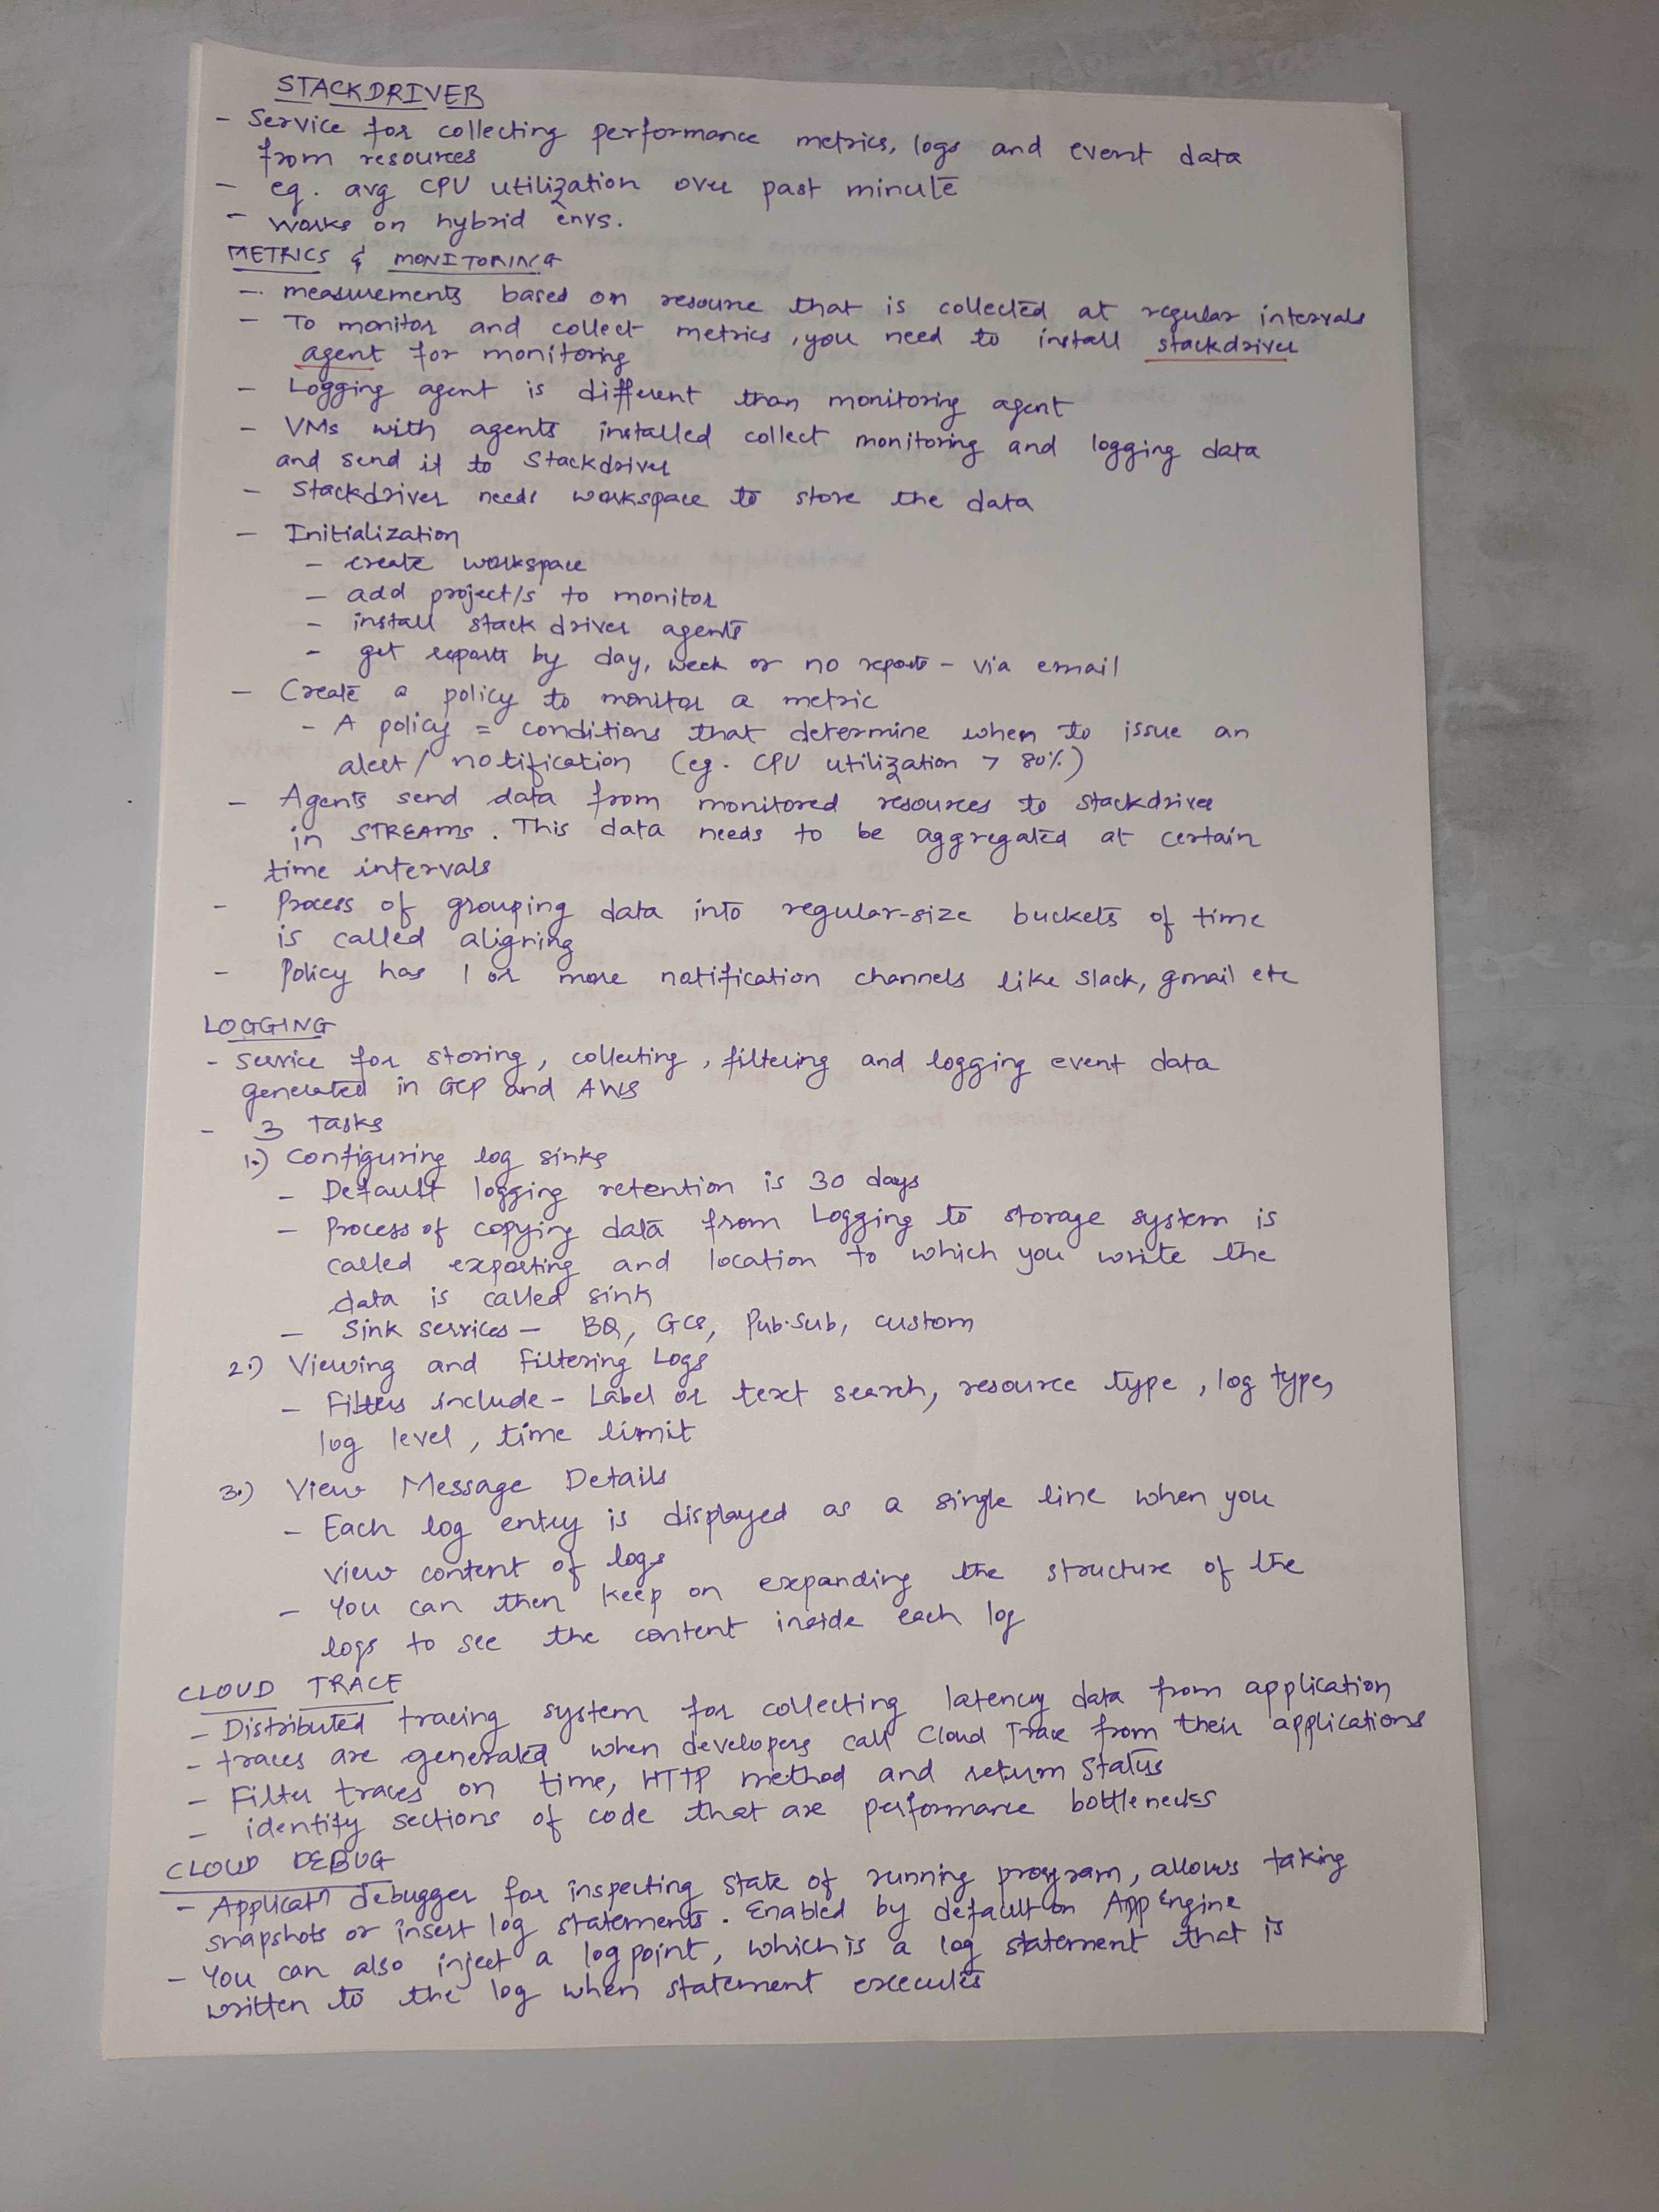 STACKDRIVER
- Service for collecting performance metrics, logs and event data
from resources
- eg. avg CPU utilization over past minute
- works on hybrid envs.
METRICS & MONITORING
- measurements based on resource that is collected at regular intervals
- To monitor and collect metrics, you need to install stackdriver
agent for monitoring
- Logging agent is different than monitoring agent
- VMs with agents installed collect monitoring and logging data
and send it to Stackdriver
- Stackdriver needs workspace to store the data
- Initialization
- create workspace
- add project/s to monitor
- install stack driver agents
- get reports by day, week or no reports - via email
- Create a policy to monitor a metric
- A policy = conditions that determine when to issue an
alert/notification (eg. CPU utilization > 80%)
- Agents send data from monitored resources to stackdriver
in STREAMS. This data needs to be aggregated at certain
time intervals
- Process of grouping data into regular-size buckets of time
is called aligning
- Policy has 1 or more notification channels like Slack, gmail etc
LOGGING
- service for storing, collecting, filtering and logging event data
generated in GCP and AWS
- 3 Tasks
1.) Configuring log sinks
- Default logging retention is 30 days
- Process of copying data from Logging to storage system is
called exporting and location to which you write the
data is called sink
- Sink services - BQ, GCS, Pub-Sub, custom
2.) Viewing and Filtering Logs
- Filters include - Label or text search, resource type, log type,
log level, time limit
3.) View Message Details
- Each log entry is displayed as a single line when you
view content of logs
- You can then keep on expanding the structure of the
logs to see the content inside each log
CLOUD TRACE
- Distributed tracing system for collecting latency data from application
- traces are generated when developers call Cloud Trace from their applications
- Filter traces on time, HTTP method and return status
- identify sections of code that are performance bottlenecks
CLOUD DEBUG
- Applicatn debugger for inspecting state of running program, allows taking
snapshots or insert log statements. Enabled by default on App Engine
- You can also inject a logpoint, which is a log statement that is
written to the log when statement executes